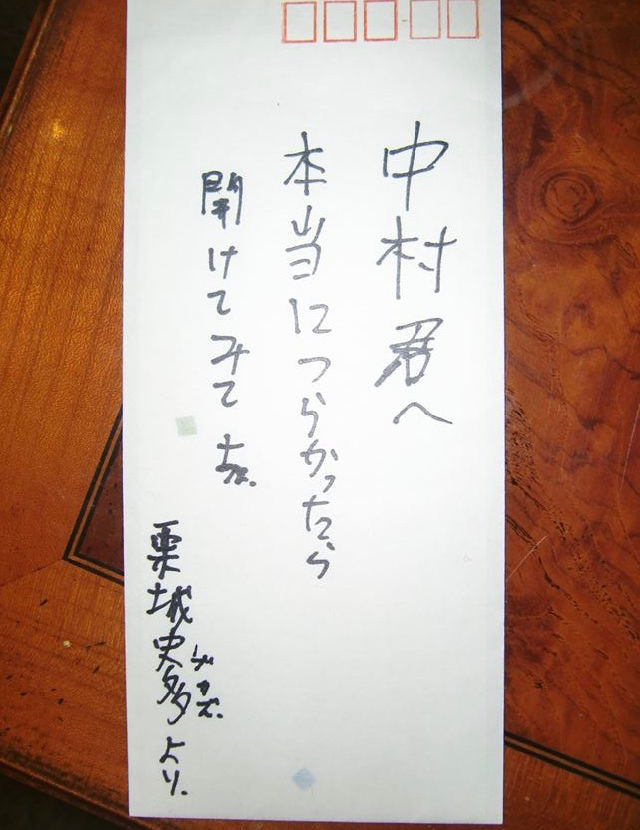 中村君へ
本当につらかったら
開けてみてな.
栗城史多より.
ノブカズ.